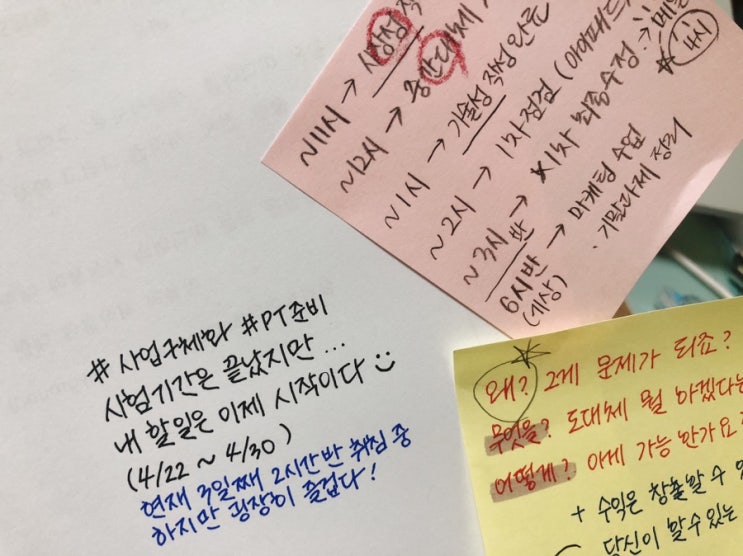 ~11시 → 시장성
~12시 → 중간대체
~1시 → 기술성 작성 완료
~2시 → 1차점검 (아이패드
~3시반 → 1차 최종수정 →
4시
6시반 → 마케팅 수업
(예상) · 기말과제 정리
# 사업구체화 #PT준비
시험기간은 끝났지만 ...
내 할일은 이제 시작이다
(4/22 ~ 4/30)
현재 3일째 2시간반 취침 중
하지만 굉장이 즐겁다!
왜? 그게 문제가 되죠?
무엇을? 도대체 뭘 하겠다는
어떻게? 이게 가능 한가요?
+ 수익은 창출할 수 있
당신이 할 수 있는